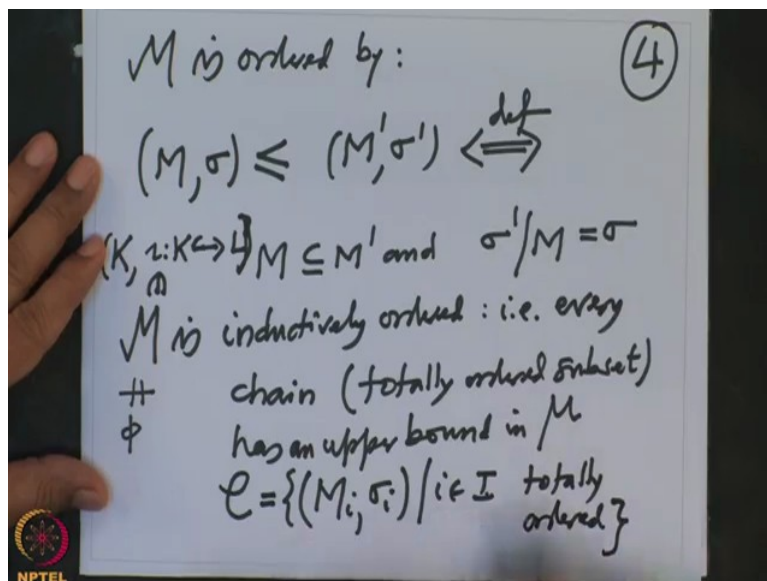 M is ordered by:
4
(M, σ) ≤ (M', σ') def ⟺
(K, ι: K ↪ L) M ⊆ M' and σ'/M = σ
∈
M is inductively ordered: i.e. every
≠ chain (totally ordered subset)
ϕ has an upper bound in M
C = {(Mi, σi) / i ∈ I totally
ordered}
NPTEL